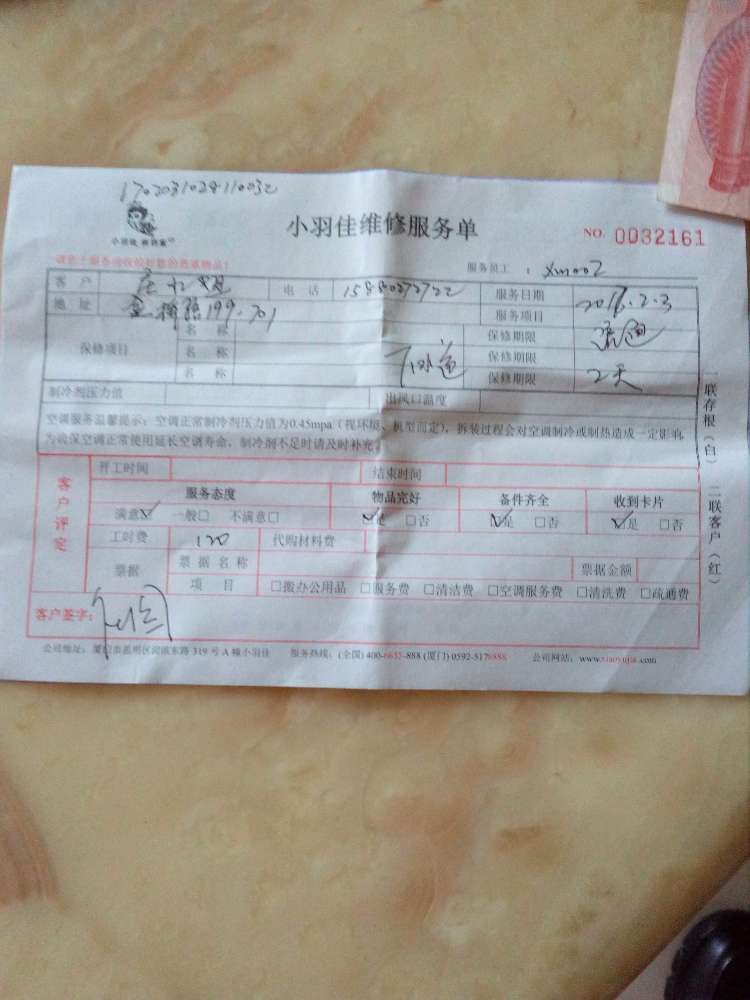 1702031029110032
小羽佳维修服务单
NO. 0032161
小羽佳 新居家
服务员工 : xm002
客户 电话 15880272722 服务日期 2017.2.3
地址 199-701 服务项目 疏通
保修项目 名称 保修期限
名称 下水道 保修期限 2天
名称 保修期限
制冷剂压力值 出风口温度
空调服务温馨提示:空调正常制冷剂压力值为0.45mpa(视环境、机型而定),拆装过程会对空调制冷或制热造成一定影响,
为确保空调正常使用延长空调寿命,制冷剂不足时请及时补充。
客户评定
开工时间 结束时间
服务态度 物品完好 备件齐全 收到卡片
满意☑ 一般□ 不满意□ ☑是 □否 ☑是 □否 ☑是 □否
工时费 120 代购材料费
票据 票据名称 票据金额
项目 □搬办公用品 □服务费 □清洁费 □空调服务费 □清洗费 □疏通费
客户签字:
公司地址:厦门市思明区 东路 319 号 A 幢小羽佳 服务热线:(全国) 400-6652-888 (厦门) 0592-5178888 公司网站:www.xiaoyujia.com
一联存根(白) 二联客户(红)